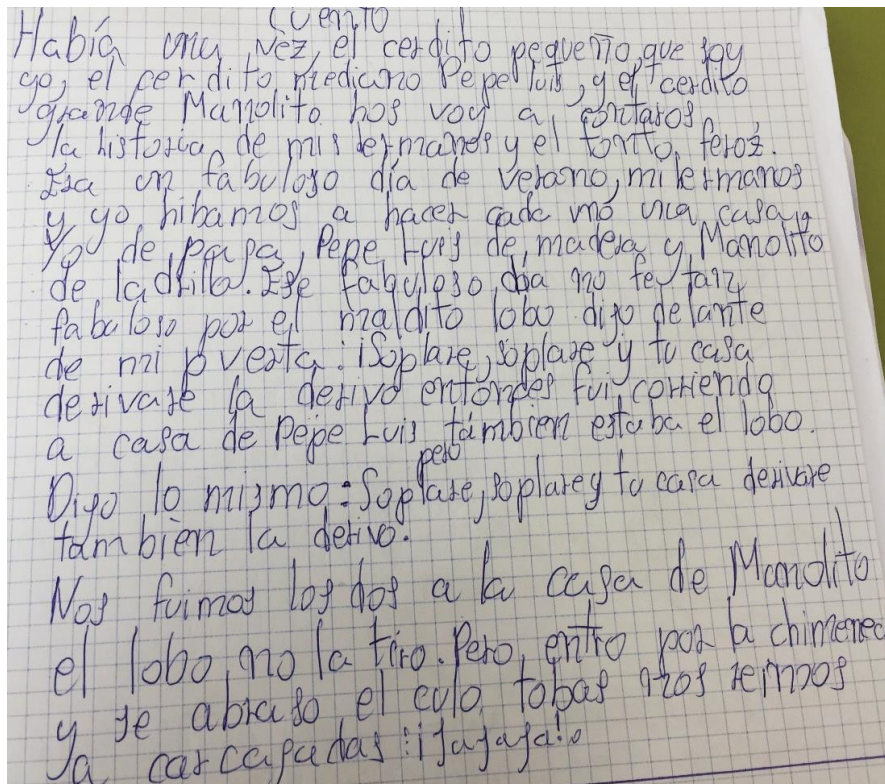 Cuento
Había una vez, el cerdito pequeño, que soy
yo, el cerdito mediano Pepe Luis, y el cerdito
grande Manolito. hos voy a contaros
la historia de mis hermanos y el tonto feroz.
Era un fabuloso día de verano, mi hermanos
y yo hibamos a hacer cada uno una casa
Yo de paja, Pepe Luis de madera y Manolito
de ladrillo. Ese fabuloso dia no fe tan
fabuloso por el maldito lobo dijo delante
de mi puerta: ¡Soplare, soplare y tu casa
derivare la derivo entonces fui corriendo
a casa de Pepe Luis pero tambien estaba el lobo.
Dijo lo mismo: Soplare, soplare y tu casa derivare
tambien la derivo.
Nos fuimos los dos a la casa de Manolito
el lobo no la tiro. Pero, entro por la chimenea
y se abraso el culo, tobas nos reimos
a carcajadas: ¡¡Jajaja!.